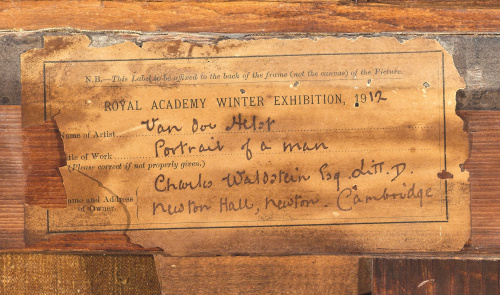 N.B.—This Label to be affixed to the back of the frame (not the canvas) of the Picture.
ROYAL ACADEMY WINTER EXHIBITION, 1912
Name of Artist... Van der Helst
Title of Work... Portrait of a man
(Please correct if not properly given.)
Charles Waldstein Esq. Litt. D.
Name and Address of Owner. Newton Hall, Newton. Cambridge